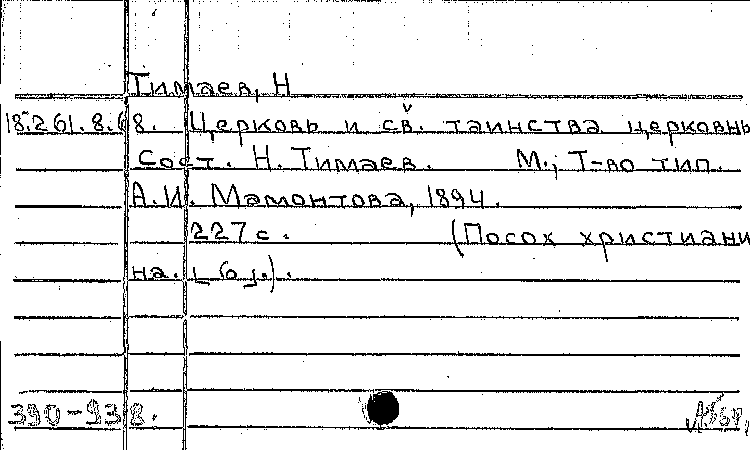 Тимаев, Н
18.261.8.68. Церковь и св. таинства церковны
Сост. Н. Тимаев. М.; Т-во тип.
А.И. Мамонтова, 1894.
227 с. (Посох христиани
на.
390-938.